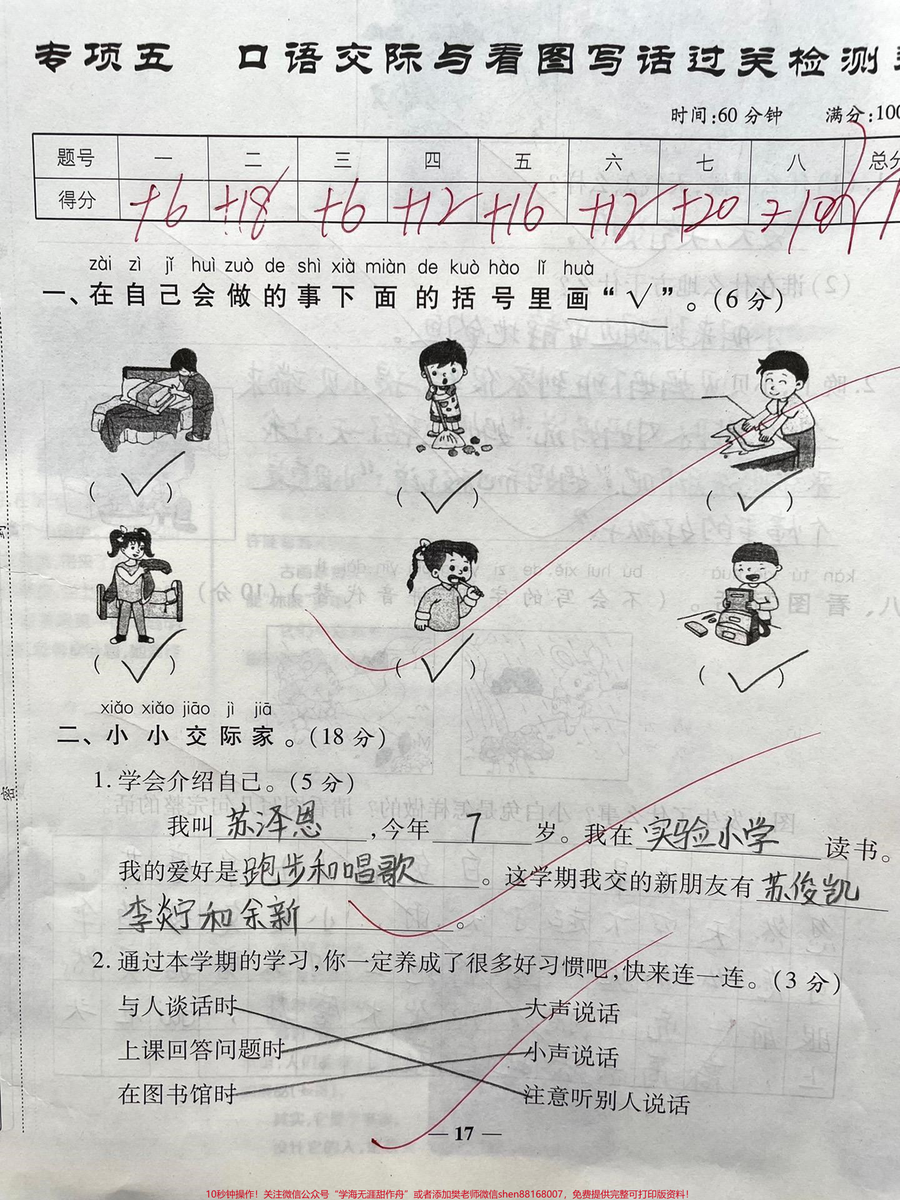 专项五 口语交际与看图写话过关检测
时间:60分钟 满分:100
题号 一 二 三 四 五 六 七 八 总分
得分
zài zì jǐ huì zuò de shì xià miàn de kuò hào lǐ huà
一、在自己会做的事下面的括号里画“√”。(6分)
(√) (√) (√)
(√) (√) (√)
xiǎo xiǎo jiāo jì jiā
二、小小交际家。(18分)
1.学会介绍自己。(5分)
我叫苏泽恩,今年7岁。我在实验小学读书。
我的爱好是跑步和唱歌。这学期我交的新朋友有苏俊凯
李炎宁和余新。
2.通过本学期的学习,你一定养成了很多好习惯吧,快来连一连。(3分)
与人谈话时 大声说话
上课回答问题时 小声说话
在图书馆时 注意听别人说话
— 17 —
密
10秒钟操作!关注微信公众号“学海无涯甜作舟”或者添加樊老师微信shen88168007,免费提供完整可打印版资料!